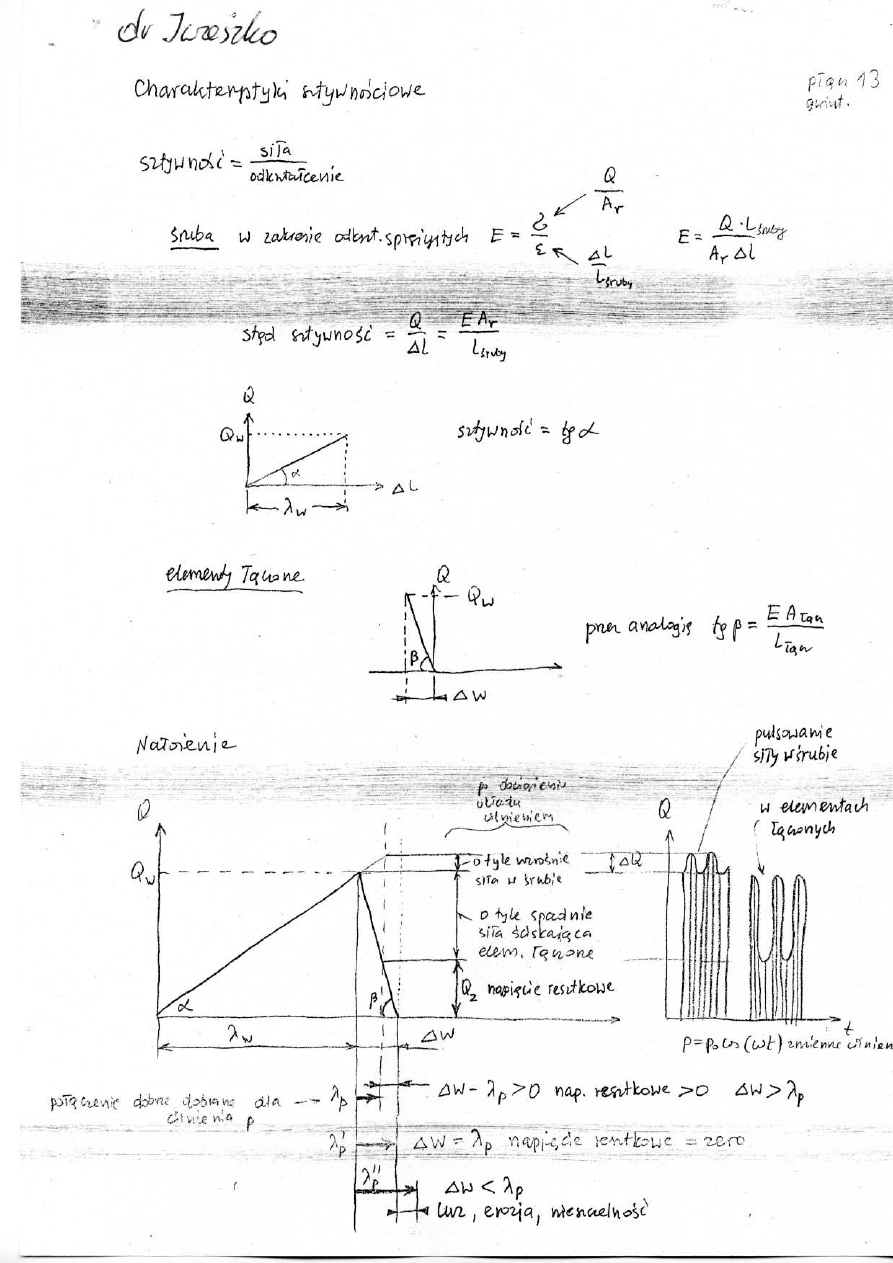 dr Jureszko
Charakterystyki sztywnościowe
płqn 13
gwint.
sztywność = siła / odkształcenie
śruba w zakresie odkszt. sprężystych E = σ / ε
Q / Ar
ΔL / Lśruby
E = Q · Lśruby / Ar ΔL
stąd sztywność = Q / ΔL = E Ar / Lśruby
Q
Qw
α
ΔL
λw
sztywność = tg α
elementy łączone
Q
Qw
β
ΔW
przez analogię tg β = E Ałącz / Lłącz
Nałożenie
pulsowanie
siły w śrubie
po dociążeniu
układu
ciśnieniem
w elementach
łączonych
Q
Qw
o tyle wzrośnie
siła w śrubie
ΔQ
o tyle spadnie
siła ściskająca
elem. łączone
Qz napięcie resztkowe
α
β'
λw
ΔW
Q
t
p = p₀ cos (ωt) zmienne ciśnien
połączenie dobrze dobrane dla
ciśnienia p
λp
ΔW - λp > 0 nap. resztkowe > 0 ΔW > λp
λp' ΔW = λp napięcie resztkowe = zero
λp'' ΔW < λp
luz, erozja, nieszczelność